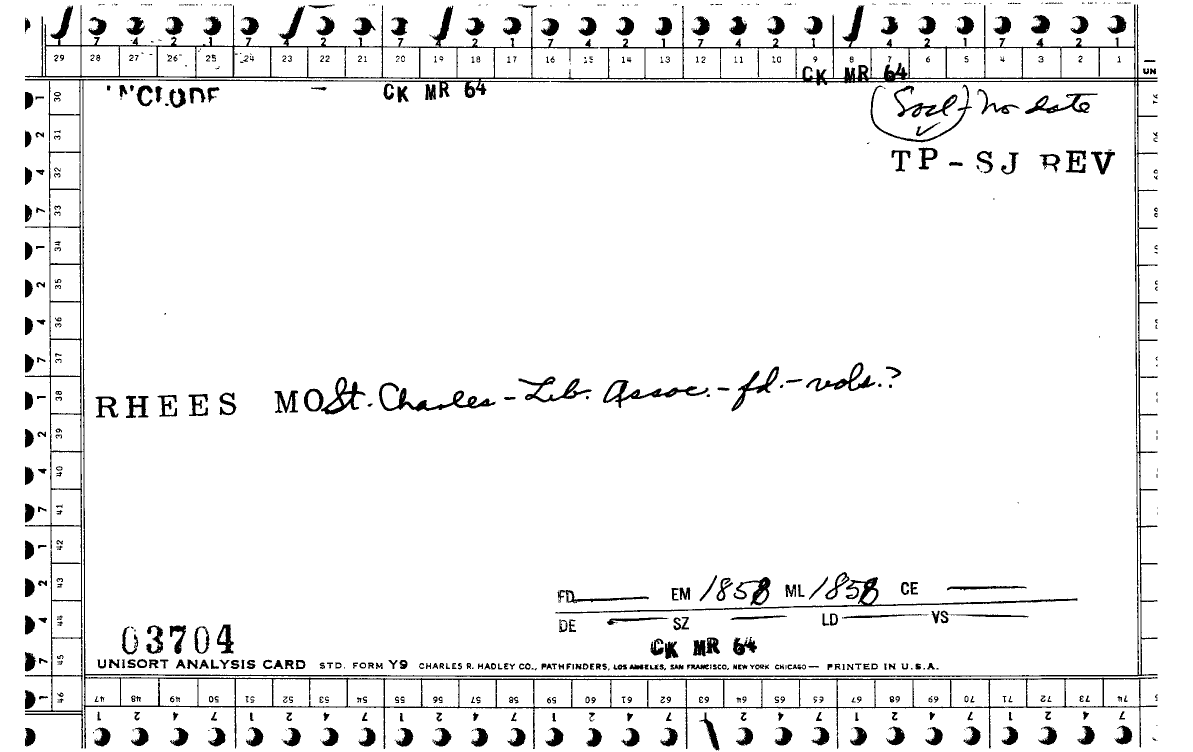 7 4 2 1 7 4 2 1 7 4 2 1 7 4 2 1 7 4 2 1 7 4 2 1 7 4 2 1
29 28 27 26 25 24 23 22 21 20 19 18 17 16 15 14 13 12 11 10 9 8 7 6 5 4 3 2 1
CK MR 64
UN
CK MR 64
(Socl) - no date
TP-SJ REV
1 30
2 31
4 32
7 33
1 34
2 35
4 36
7 37
1 38
2 39
4 40
7 41
1 42
2 43
4 44
7 45
1 46
RHEES MO St. Charles - Lib. Assoc. - fd. - vols.?
FD EM 1858 ML 1858 CE
DE SZ LD VS
03704
CK MR 64
UNISORT ANALYSIS CARD STD. FORM Y9 CHARLES R. HADLEY CO., PATHFINDERS, LOS ANGELES, SAN FRANCISCO, NEW YORK CHICAGO — PRINTED IN U.S.A.
47 48 49 50 51 52 53 54 55 56 57 58 59 60 61 62 63 64 65 66 67 68 69 70 71 72 73 74
1 2 4 7 1 2 4 7 1 2 4 7 1 2 4 7 1 2 4 7 1 2 4 7 1 2 4 7